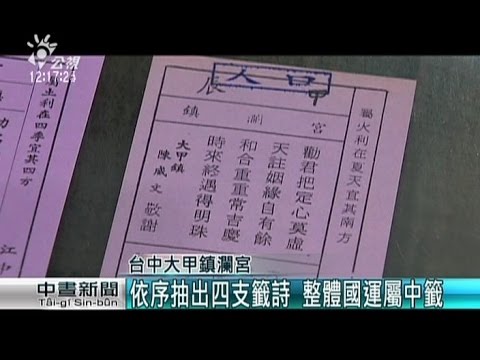 公視
12:17:24
屬火利在夏天宜其南方
甲
辰
鎮瀾宮
勸君把定心莫虛
天註姻緣自有餘
和合重重常吉慶
時來終遇得明珠
大甲鎮
陳威文 敬謝
屬土利在四季宜其四方
台中大甲鎮瀾宮
中晝新聞
Tâi-gí Sin-bûn
依序抽出四支籤詩 整體國運屬中籤